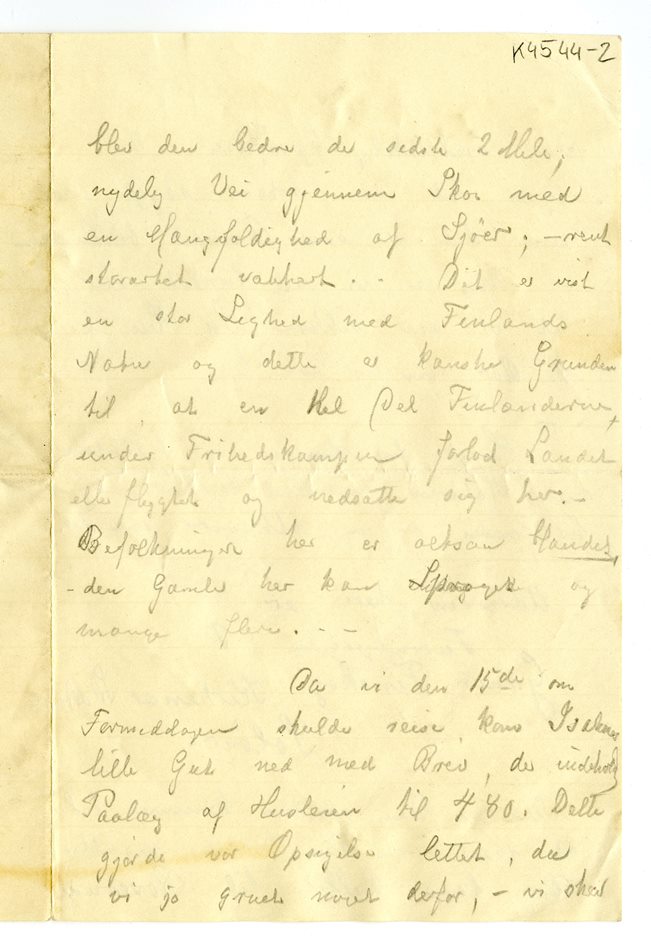 K4544-2
blev den bedre de sidste 2 Mile,
nydelig Vei gjennem Skov med
en Mangfoldighed af Sjöer; – rent
storartet vakkert. – Det er vist
en stor Lighed med Finlands
Natur og dette er kanske Grunden
til, at en Hel Del Finlænderne,
under Frihedskampen forlod Landet
eller flygtet og nedsatte sig her. –
Befolkningen her er altsaa
– den Gamle her kan Sproget og
mange flere. – –
Da vi den 15de om
Formiddagen skulde reise, kom
lille Gut ned med Brev, der indeholdt
Paalæg af Husleien til 480. Dette
gjorde vor Opsigelse lettet, da
vi jo gruet noget derfor, – vi skal